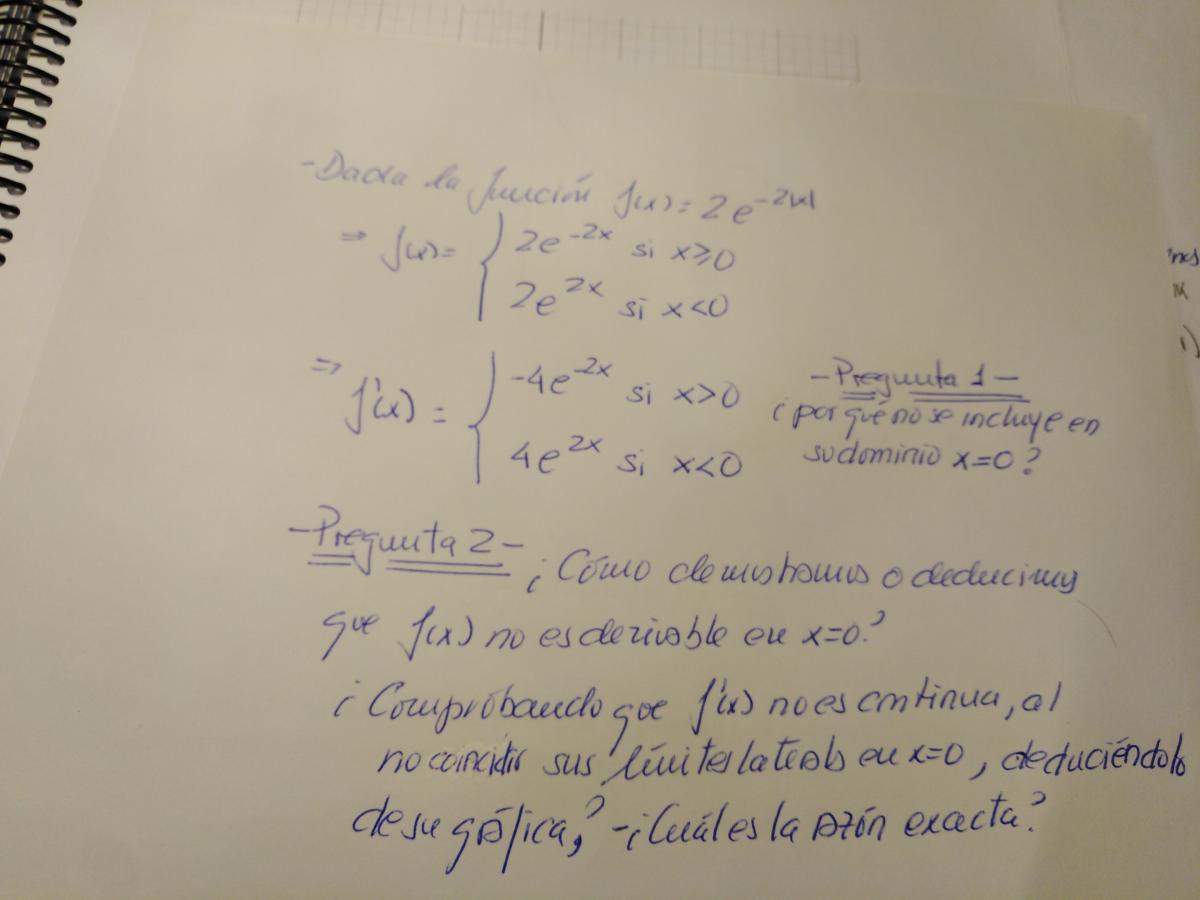 -Dada la función f(x)= 2e^-2|x|
⇒ f(x)= { 2e^-2x si x≥0
2e^2x si x<0
⇒ f'(x) = { -4e^-2x si x>0
4e^2x si x<0
-Pregunta 1-
¿por qué no se incluye en
su dominio x=0?
-Pregunta 2- ¿Cómo demostramos o deducimos
que f(x) no es derivable en x=0?
¿Comprobando que f'(x) no es continua, al
no coincidir sus límites laterals en x=0, deduciéndolo
de su gráfica,? -¿Cuál es la razón exacta?